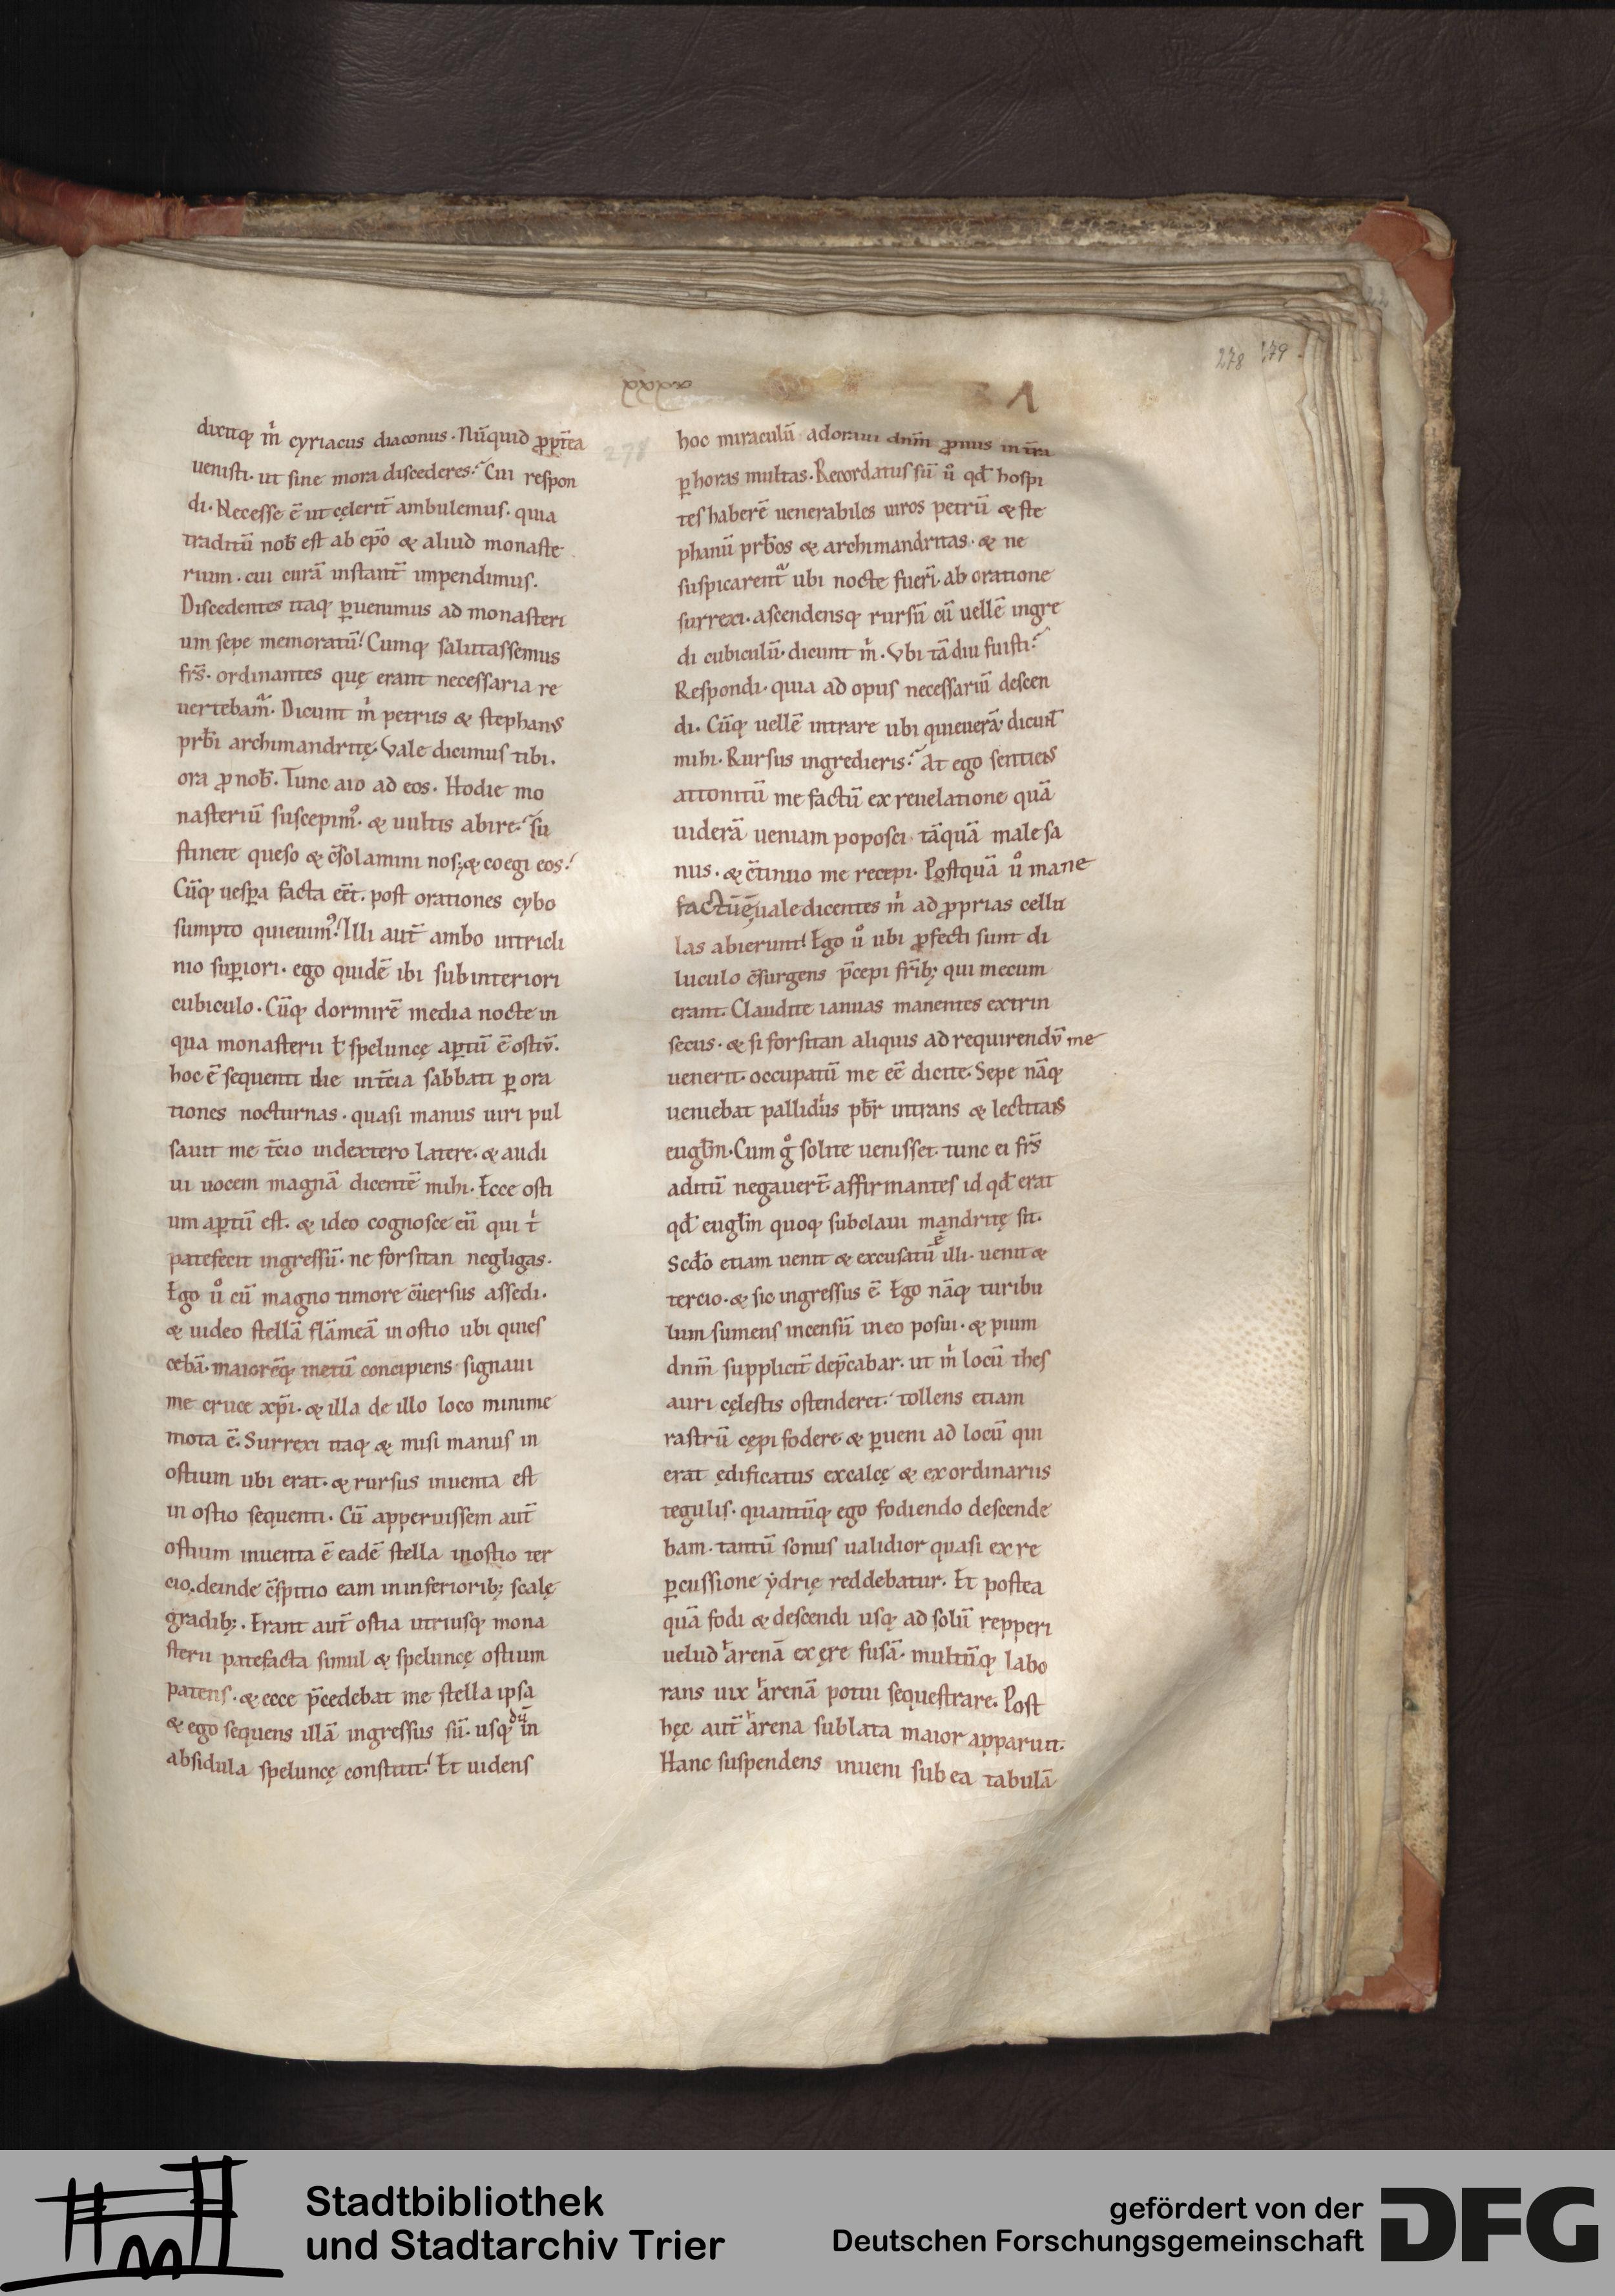 278 279
dixitq; m̄ cyriacus diaconus. Nūquid ꝓpt̄ea
uenisti. ut sine mora discederes? Cui respon
di. Necesse ē ut celerit̄ ambulemus. quia
traditū nob̄ est ab ep̄o & aliud monaste
rium. cui curā instant̄ impendimus.
Discedentes itaq; ꝑuenimus ad monasteri
um sepe memoratū. Cumq; salutassemus
fr̄s. ordinantes quę erant necessaria re
uertebam̄. Dicunt m̄ petrus & stephanus
prb̄i archimandritę. Vale dicimus tibi.
ora ꝓ nob̄. Tunc aio ad eos. Hodie mo
nasteriū suscepim᷒. & uultis abire? Su
stinete queso & c̄solamini nos; & coegi eos.
Cūq; uesꝑa facta eēt. post orationes cybo
sumpto quieuim᷒. Illi aut̄ ambo intricli
nio suꝑiori. ego quidē ibi sub interiori
cubiculo. Cūq; dormirē media nocte in
qua monasterii ł speluncę aꝑtū ē ostiū.
hoc ē sequenti die in t̄cia sabbati ꝑ ora
tiones nocturnas. quasi manus uiri pul
sauit me t̄cio in dextero latere. & audi
ui uocem magnā dicentē mihi. Ecce osti
um aꝑtū est. & ideo cognosce eū qui t̄
patefecit ingressū. ne forsitan negligas.
Ego u̇ cū magno timore c̄uersus assedi.
& uideo stellā flāmeā in ostio ubi quies
cebā. maiorēq; metū concipiens signaui
me cruce xp̄i. & illa de illo loco minime
mota ē. Surrexi itaq; & misi manus in
ostium ubi erat. & rursus inuenta est
in ostio sequenti. Cū apperuissem aut̄
ostium inuenta ē eadē stella in ostio ter
cio. deinde c̄spitio eam in inferiorib; scalę
gradib;. Erant aut̄ ostia utriusq; mona
sterii patefacta simul & speluncę ostium
patens. & ecce p̄cedebat me stella ipsa
& ego sequens illā ingressus sū. usq; dū in
absidula speluncę constitit. Et uidens
278
hoc miraculū adoraui dnm̄ ꝓnus in tr̄a
ꝑ horas multas. Recordatus sū u̇ qd̄ hospi
tes haberē uenerabiles uiros petrū & ste
phanū prb̄os & archimandritas. & ne
suspicarent̄ ubi nocte fuer̄i. ab oratione
surrexi. ascendensq; rursū cū uellē ingre
di cubiculū. dicunt m̄. Vbi tādiu fuisti?
Respondi. quia ad opus necessariū descen
di. Cūq; uellē intrare ubi quieuerā. dicunt
mihi. Rursus ingredieris? At ego sentiens
attonitū me factū ex reuelatione quā
uiderā ueniam poposci tāquā male sa
nus. & c̄tinuo me recepi. Postquā u̇ mane
factū ē. uale dicentes m̄ ad ꝓprias cellu
las abierunt. Ego u̇ ubi ꝓfecti sunt di
luculo c̄surgens p̄cepi fr̄ib; qui mecum
erant. Claudite ianuas manentes extrin
secus. & si forsitan aliquis ad requirendū me
uenerit. occupatū me eē dicite. Sepe nāq;
ueniebat pallidius pb̄r intrans & lectitans
eugł̄m. Cum g̊ solite uenisset. tunc ei fr̄s
aditū negauer̄t affirmantes id qd̄ erat
qd̄ eugł̄m quoq; subolaui mandritę sit.
Scd̄o etiam uenit & excusatū ē illi. uenit &
tercio. & sic ingressus ē. Ego nāq; turibu
lum sumens incensū in eo posui. & pium
dnm̄ supplicit̄ dep̄cabar. ut m̄ locū thes
auri cęlestis ostenderet. tollens etiam
rastrū cępi fodere & ꝑueni ad locū qui
erat ędificatus ex calcę & ex ordinariis
tegulis. quantūq; ego fodiendo descende
bam. tantū sonus ualidior quasi ex re
ꝑcussione ydrię reddebatur. Et postea
quā fodi & descendi usq; ad solū repperi
uelud arenā ex ęre fusā. multūq; labo
rans uix arenā potui sequestrare. Post
hęc aut̄ arena sublata maior apparuit.
Hanc suspendens inueni sub ea tabulā
Stadtbibliothek
und Stadtarchiv Trier
gefördert von der
Deutschen Forschungsgemeinschaft
DFG